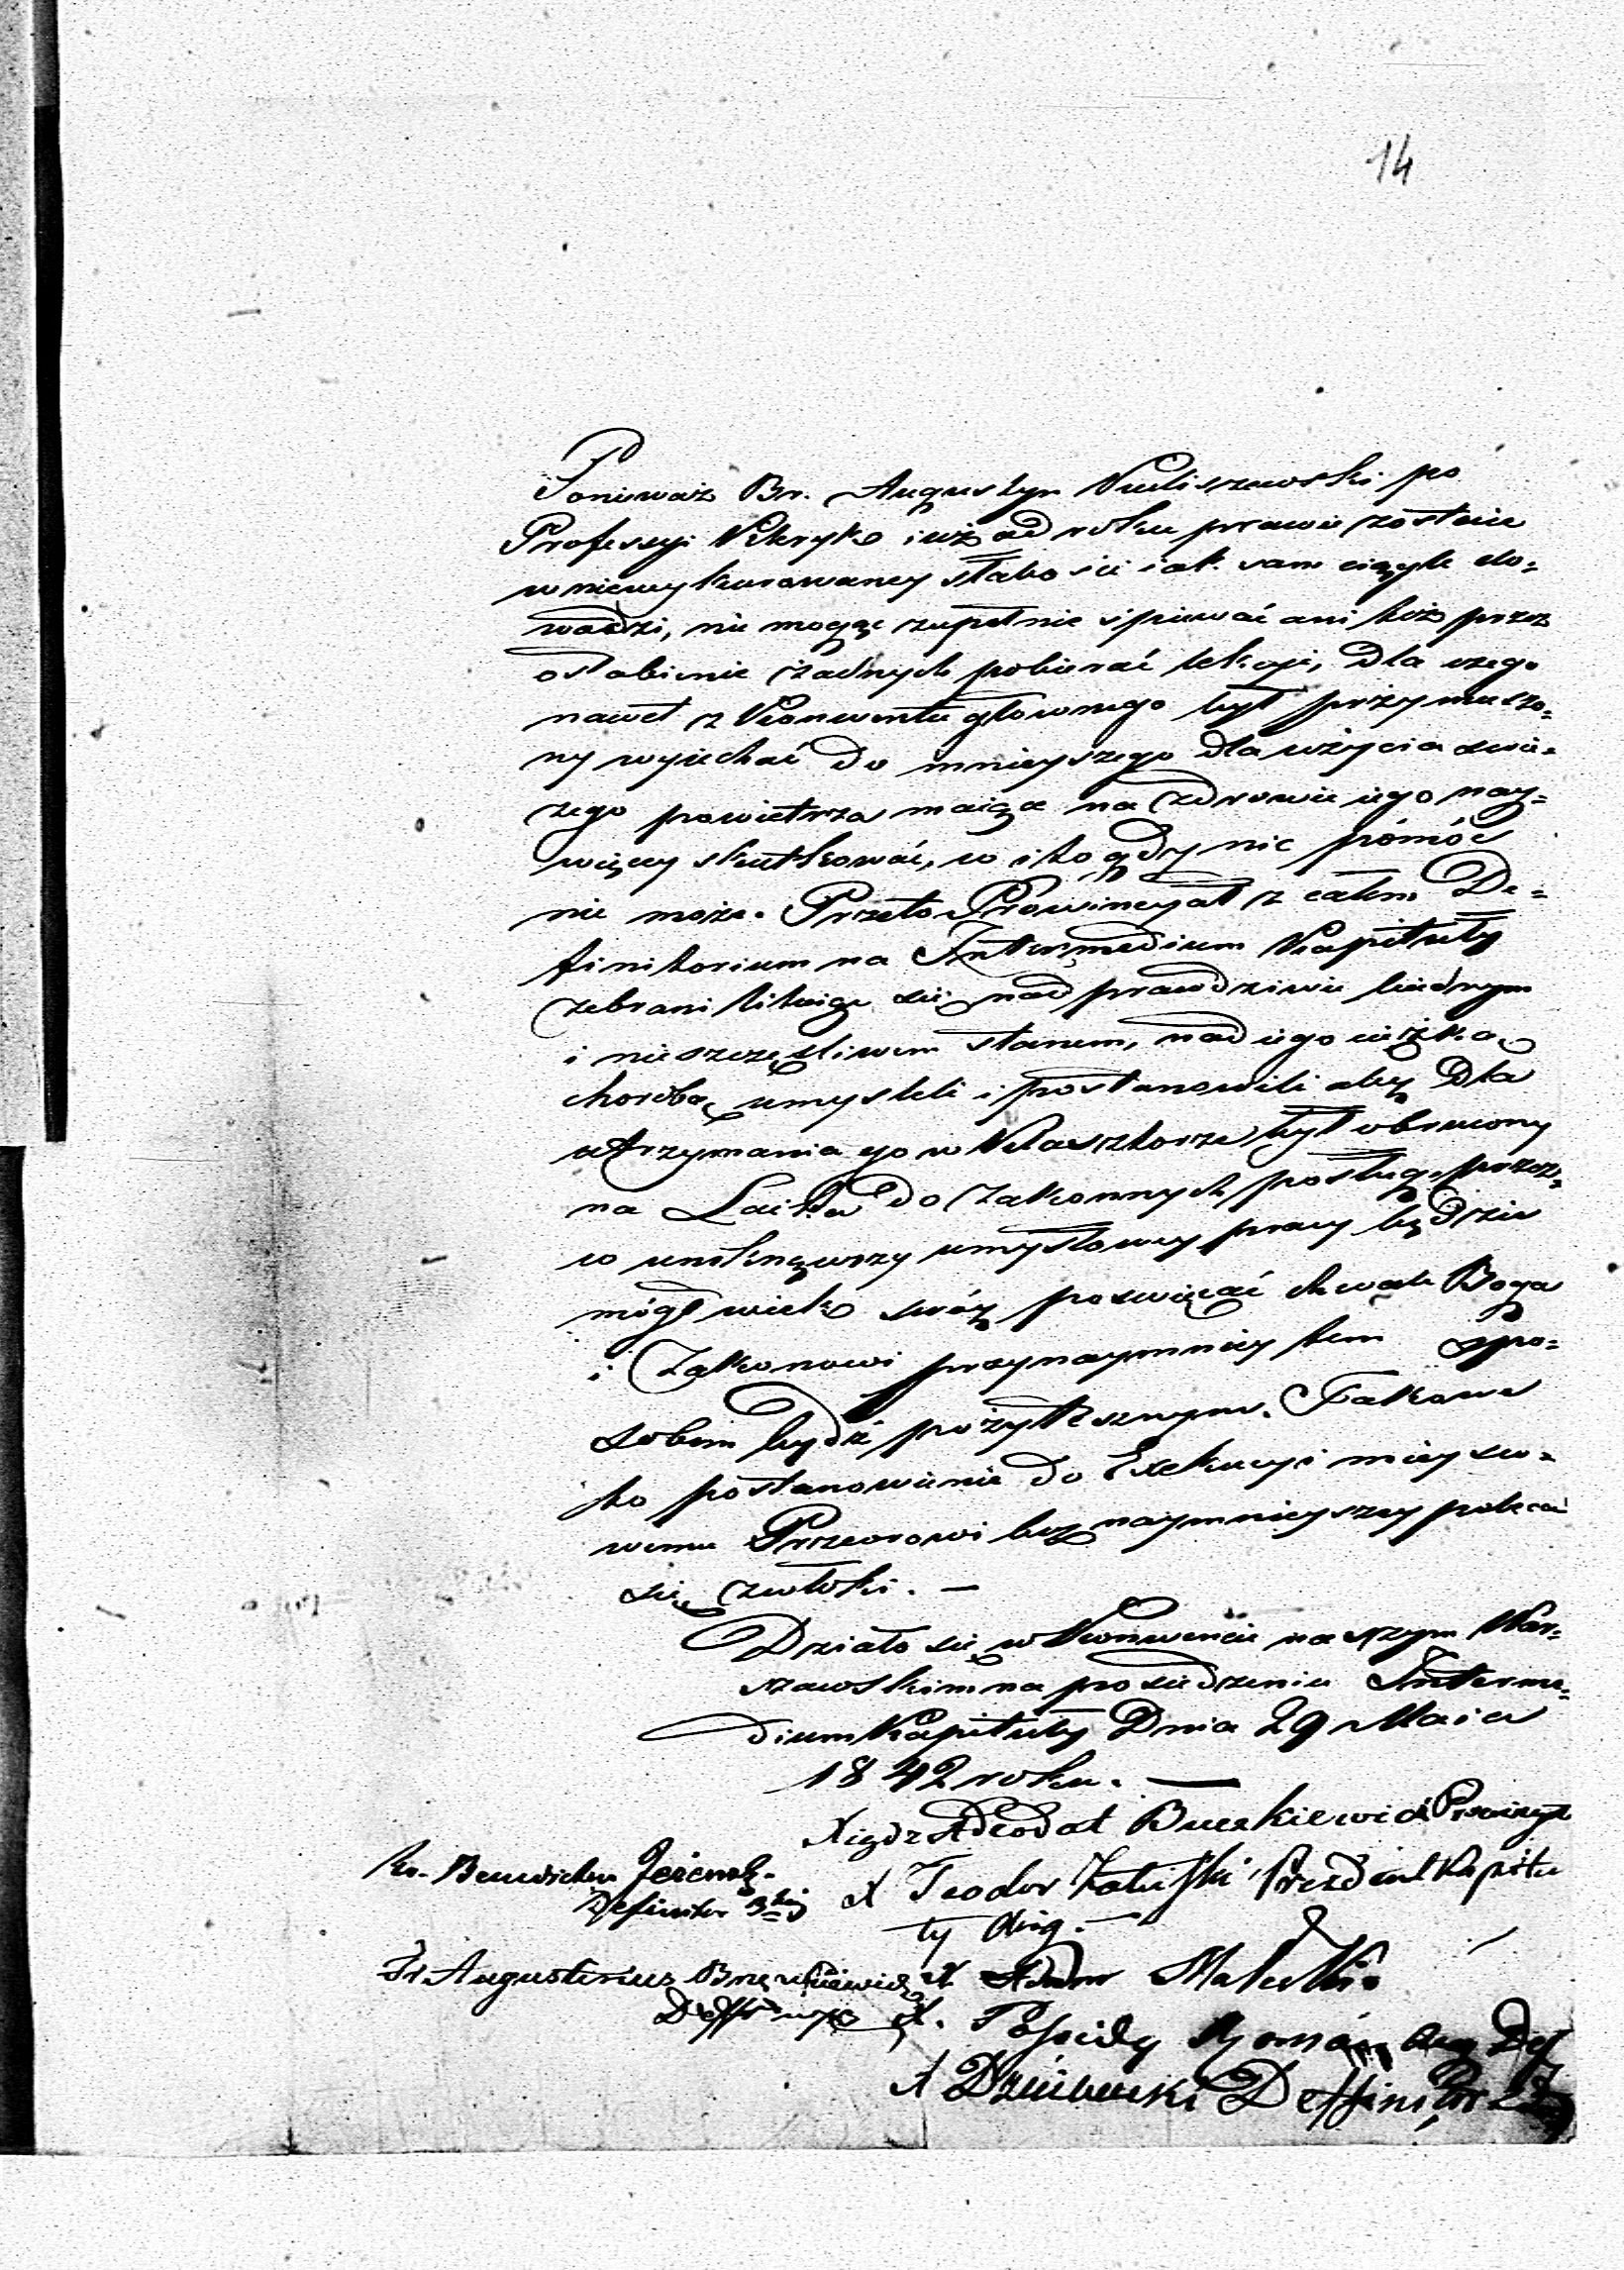 14
Ponieważ Br. Augustyn Kuliszewski po
Professyi Kleryk iuż od roku prawie zostaie
w niewykurowaney słabości iak sam ciągle do=
wodzi, nie mogąc zupełnie śpiewać ani też przez
osłabienie żadnych pobierać lekcyi, dla czego
nawet z Konwentu głownego był przymuszo=
ny wyiechać do mnieyszego dla użycia świe=
żego powietrza maiące na zdrowie iego nay=
więcey skutkować, co i to gdy nic pomóc
nie może. Przeto Prowincyał z całem De=
finitorium na Intermedium Kapituły
zebrani lituiąc się nad prawdziwie biednym
i nieszczęśliwem stanem, nad iego ciężką
chorobą umyslili i postanowili aby dla
utrzymania go w Klasztorze był obrucony
na Laika do zakonnych posług, przez
co uniknąwszy umysłowey pracy będzie
mógł wiek swóy poswięcać chwale Boga
i Zakonowi przynaymniey tem spo=
sobem bydź pożytecznym. Takowe
to postanowienie do Exekucyi mieysco=
wemu Przeorowi bez naymnieyszey poleca
się zwłoki. —
Działo się w Konwencie naszym War=
szawskim na posiedzeniu Interme=
dium Kapituły Dnia 29 Maia
1842 roku. —
Xiądz Adeodat Buczkiewicz Prowincyał
X Teodor Załuski Prezydent Kapitu
ły Aug. —
Definitor 3ci
Fr. Augustinus
X Adam Malecki
X. Roman Aug Def
X Deffinitor